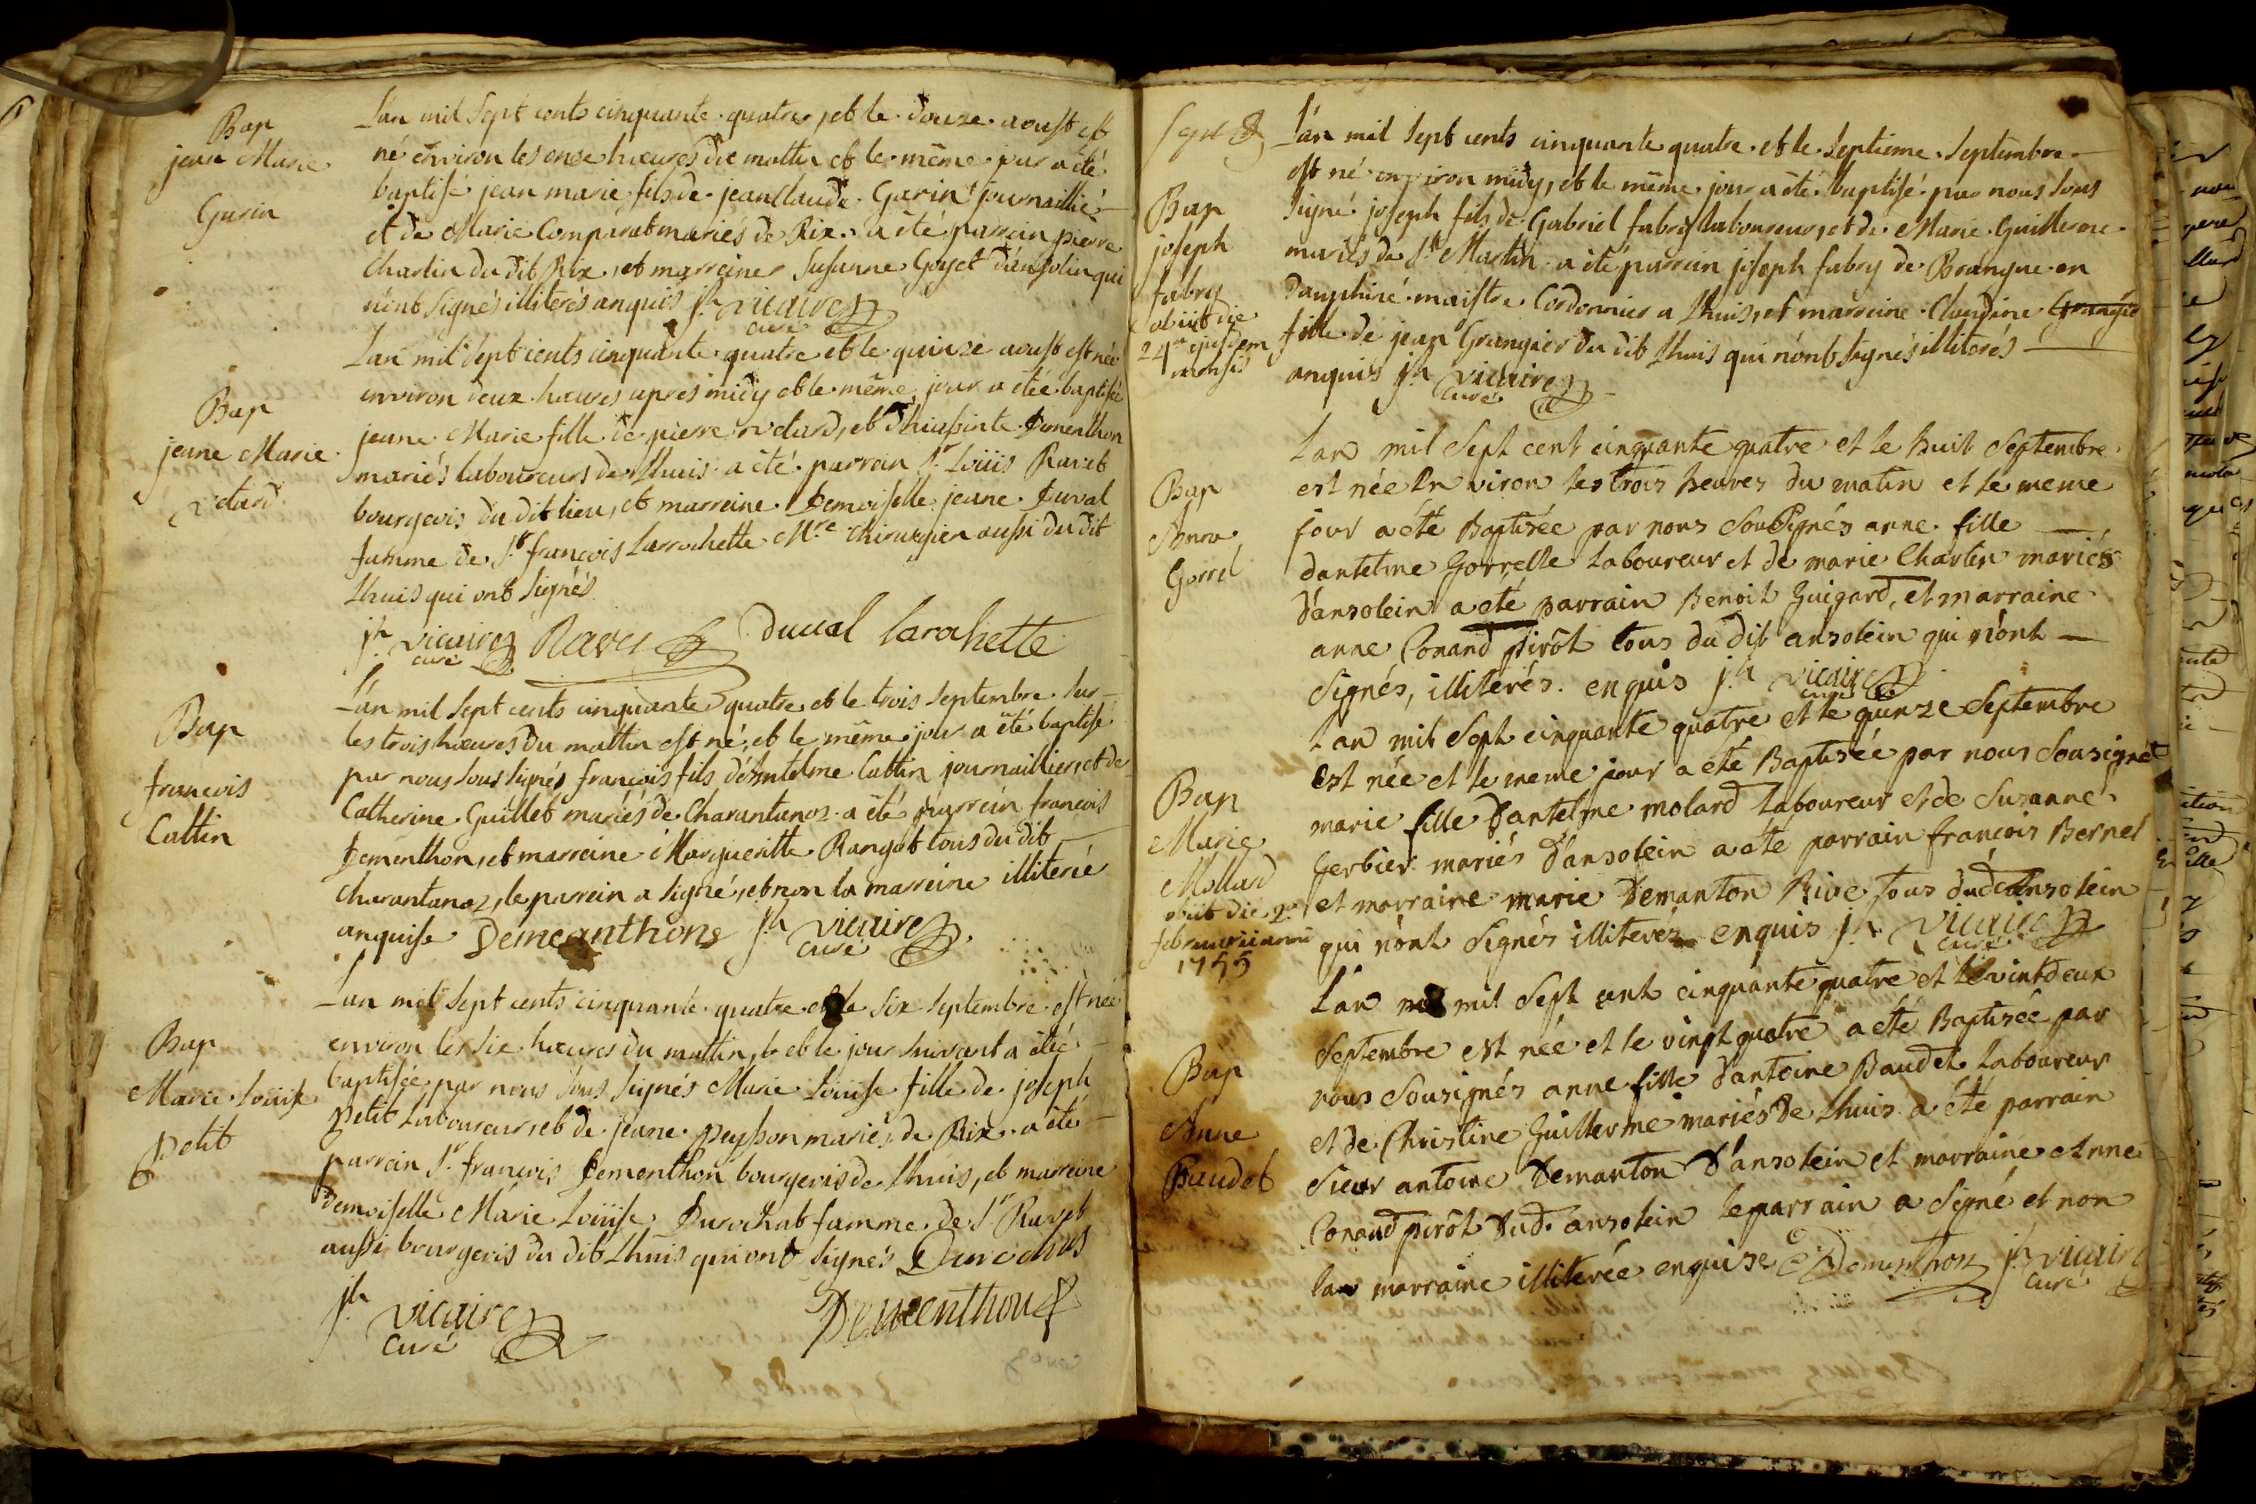 Bap
jean Marie
Gurin
L'an mil sept cents cinquante quatre, et le douze aoust est
né environ les onze hœures du mattin et le même jour a été
baptisé jean marie fils de jean Claude Gurin journaillié
et de Marie Comparat mariés de Rix. a été parrain pierre
Charlin du dit Rix, et marreine Susanne Goyet d'ansolin qui
n'ont signés illiterés anquis jh vicaire
curé
Bap
jeane Marie
L'an mil sept cents cinquante quatre et le quinze aoust est née
environ deux hœures apres midy et le même jour a étée baptisée
jeane Marie fille de pierre et d'hiassinte Dementhon
mariés laboureurs de Lhuis a été parrain Sr Loüis Ravet
bourgeois du dit lieu, et marreine Demoiselle jeane Duval
famme de Sr françois Larrochette Mre Chirurgien aussi du dit
Lhuis qui ont signés
jh vicaire Ravet Duval larochette
curé
Bap
francois
Cattin
L'an mil sept cents cinquante quatre et le trois septembre sur
les trois hœures du mattin est né, et le même jour a été baptisé
par nous sous signés françois fils d'Antelme Cattin journaillier, et de
Catherine Guillet mariés de Charantanoz a été parrein francois
Dementhon, et marreine Margueritte Rangot tous du dit
Charantanoz, le parrein a signé, et non la marreine illiterée
anquise Demeanthons jh vicaire
curé
Bap
Marie Loüise
petit
L'an mil sept cents cinquante quatre et le six septembre est née
environ les six hœures du mattin, et le jour suivant a étée
baptisée par nous sous signés Marie Loüise fille de joseph
petit Laboureur, et de jeane peysson mariés de Rix a été
parrein Sr francois Dementhon bourgeois de Lhuis, et marreine
demoiselle Marie Loüise Durochat famme de Sr Ravet
aussi bourgeois du dit Lhuis qui ont signés Durochat
jh vicaire Dementhon
curé
Sept
Bap
joseph
fabry
obiit die
24a ejusdem
mensis
L'an mil sept cents cinquante quatre et le septieme septembre
est né environ midy, et le même jour a été baptisé par nous sous
signé joseph fils de Gabriel fabry laboureur, et de Marie Guillerme
mariés de St Martin a été parrain joseph fabry de Brangue en
Dauphiné maistre Cordonnier a Lhuis, et marreine Claudine Grangié
fille de jean Grangier du dit Lhuis qui n'ont signés illiterés
anquis jh vicaire
curé
Bap
Anne
Gorrel
L'an mil sept cent cinquante quatre et le huit septembre
est née En viron les trois heures du matin et le meme
jour a été Baptisée par nous Sousignés anne fille
dantelme Gorrelle Laboureur et de marie Charlin mariés
d'ansolein a eté parrain Benoit Guigard, et marraine
anne Conand pirôt tous du dit ansolein qui n'ont
signés, illiterés enquis jh vicaire
curé
Bap
Marie
Mollard
obiit die 2a
februarii anni
1755
L'an mil Sept cinquante quatre et le quinze Septembre
Est née et le meme jour a été Baptisée par nous Sousigné
marie fille d'antelme molard Laboureur et de Suzanne
Gerbier mariés d'ansolein a eté parrain francois Bernel
et marraine marie Demanton Rive tous dud ansolein
qui n'ont Signés illiterés enquis jh vicaire
curé
Bap
Anne
Baudet
L'an mil Sept cent cinquante quatre et le vintdeux
Septembre est née et le vingt quatre a eté Baptisée par
nous Sousignés anne fille d'antoine Baudet Laboureur
et de Christine Guillerme mariés de Lhuis a été parrain
Sieur antoine Demanton d'ansolein et marraine Anne
Conand pirôt dud. ansolein le parrain a Signé et non
la marraine illiterée enquise Dementhon jh vicaire
curé